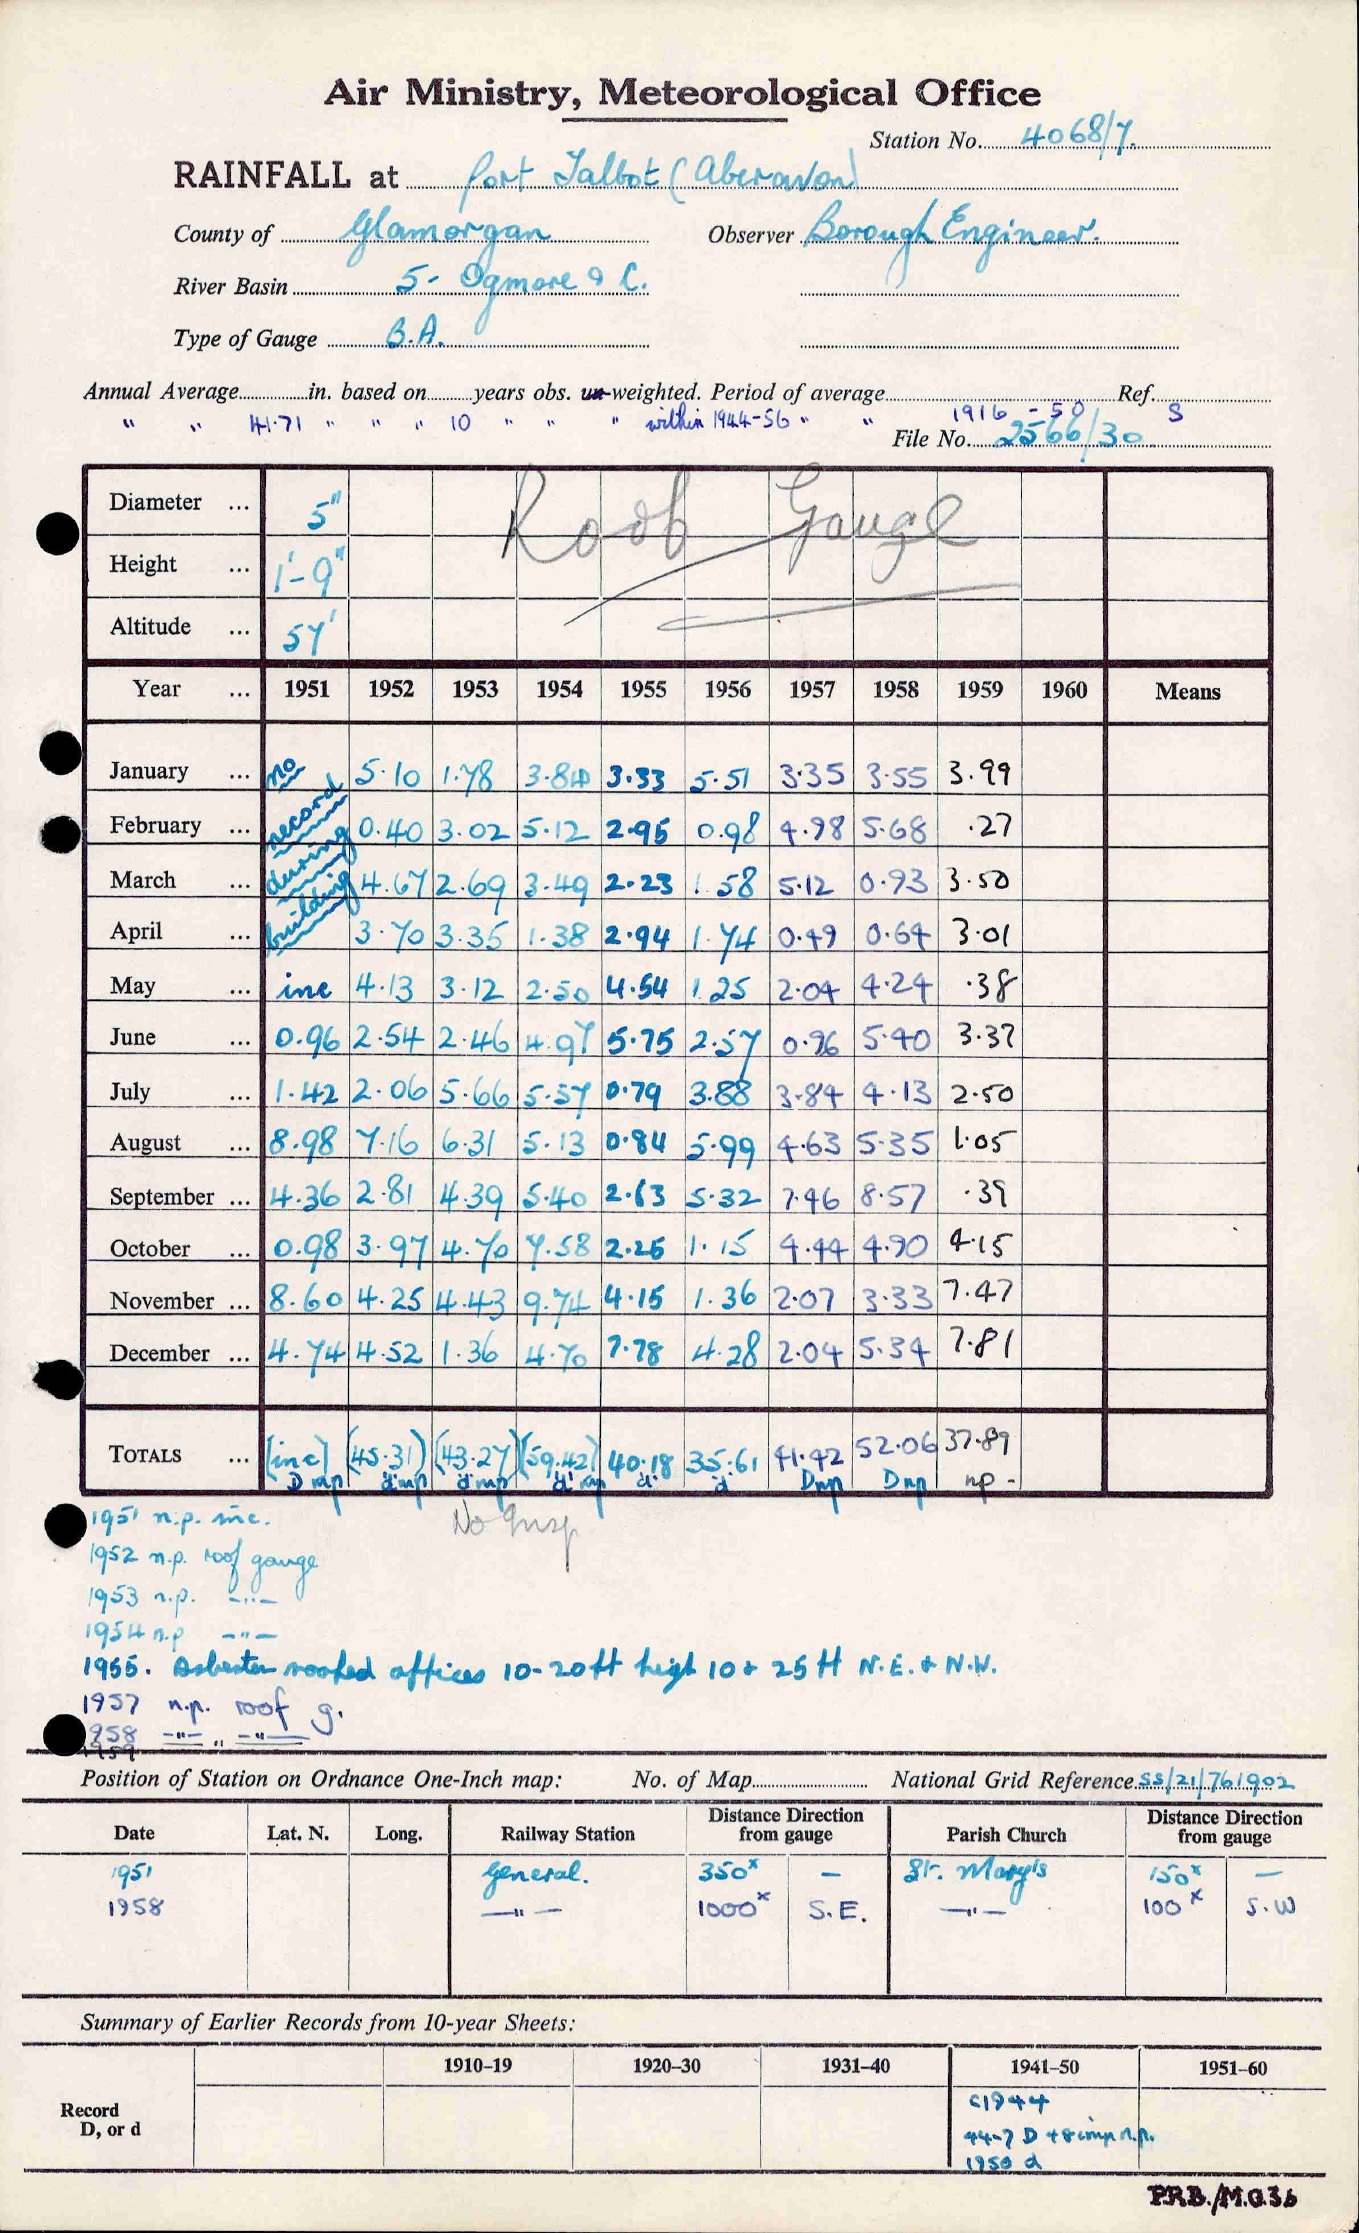 Air Ministry, Meteorological Office
Station No. 4068/7.
RAINFALL at Port Talbot (Aberavon)
County of Glamorgan Observer Borough Engineer.
River Basin 5- Ogmore & C.
Type of Gauge B.A.
Annual Average in. based on years obs. un-weighted. Period of average Ref.
" " 41.71 " " " 10 " " " within 1944-56 " " 1916-50 S
File No. 2566/30
Diameter ... 5"
Roof Gauge
Height ... 1'-9"
Altitude ... 57'
Year ... 1951 1952 1953 1954 1955 1956 1957 1958 1959 1960 Means
no record during building
January ... 5.10 1.78 3.84 3.33 5.51 3.35 3.55 3.99
February ... 0.40 3.02 5.12 2.95 0.98 4.98 5.68 .27
March ... 4.67 2.69 3.49 2.23 1.58 5.12 0.93 3.50
April ... 3.70 3.35 1.38 2.94 1.74 0.49 0.64 3.01
May ... inc 4.13 3.12 2.50 4.54 1.25 2.04 4.24 .38
June ... 0.96 2.54 2.46 4.97 5.75 2.57 0.96 5.40 3.37
July ... 1.42 2.06 5.66 5.57 0.79 3.88 3.84 4.13 2.50
August ... 8.98 7.16 6.31 5.13 0.84 5.99 4.63 5.35 1.05
September ... 4.36 2.81 4.39 5.40 2.63 5.32 7.46 8.57 .39
October ... 0.98 3.97 4.70 7.58 2.25 1.15 4.44 4.90 4.15
November ... 8.60 4.25 4.43 9.74 4.15 1.36 2.07 3.33 7.47
December ... 4.74 4.52 1.36 4.70 7.78 4.28 2.04 5.34 7.81
TOTALS ... (inc) (45.31) (43.27) (59.42) 40.18 35.61 41.42 52.06 37.89
D mp d'mp d'mp d'mp d' d Dnp Dnp np -
1951 n.p. inc. No Insp
1952 n.p. roof gauge
1953 n.p. -"-
1954 n.p -"-
1955. Asbestos roofed offices 10-20ft high 10 & 25 ft N.E. & N.W.
1957 n.p. roof g.
1958 -"- " -"-
1959
Position of Station on Ordnance One-Inch map: No. of Map National Grid Reference SS/21/761902
Date Lat. N. Long. Railway Station Distance Direction from gauge Parish Church Distance Direction from gauge
1951 General. 350x - St. Mary's 150x -
1958 -"- 1000x S.E. -"- 100x S.W
Summary of Earlier Records from 10-year Sheets:
1910-19 1920-30 1931-40 1941-50 1951-60
Record D, or d
c1944
44-7 D 48 imp n.p.
1950 d
P.R.B./M.O.36